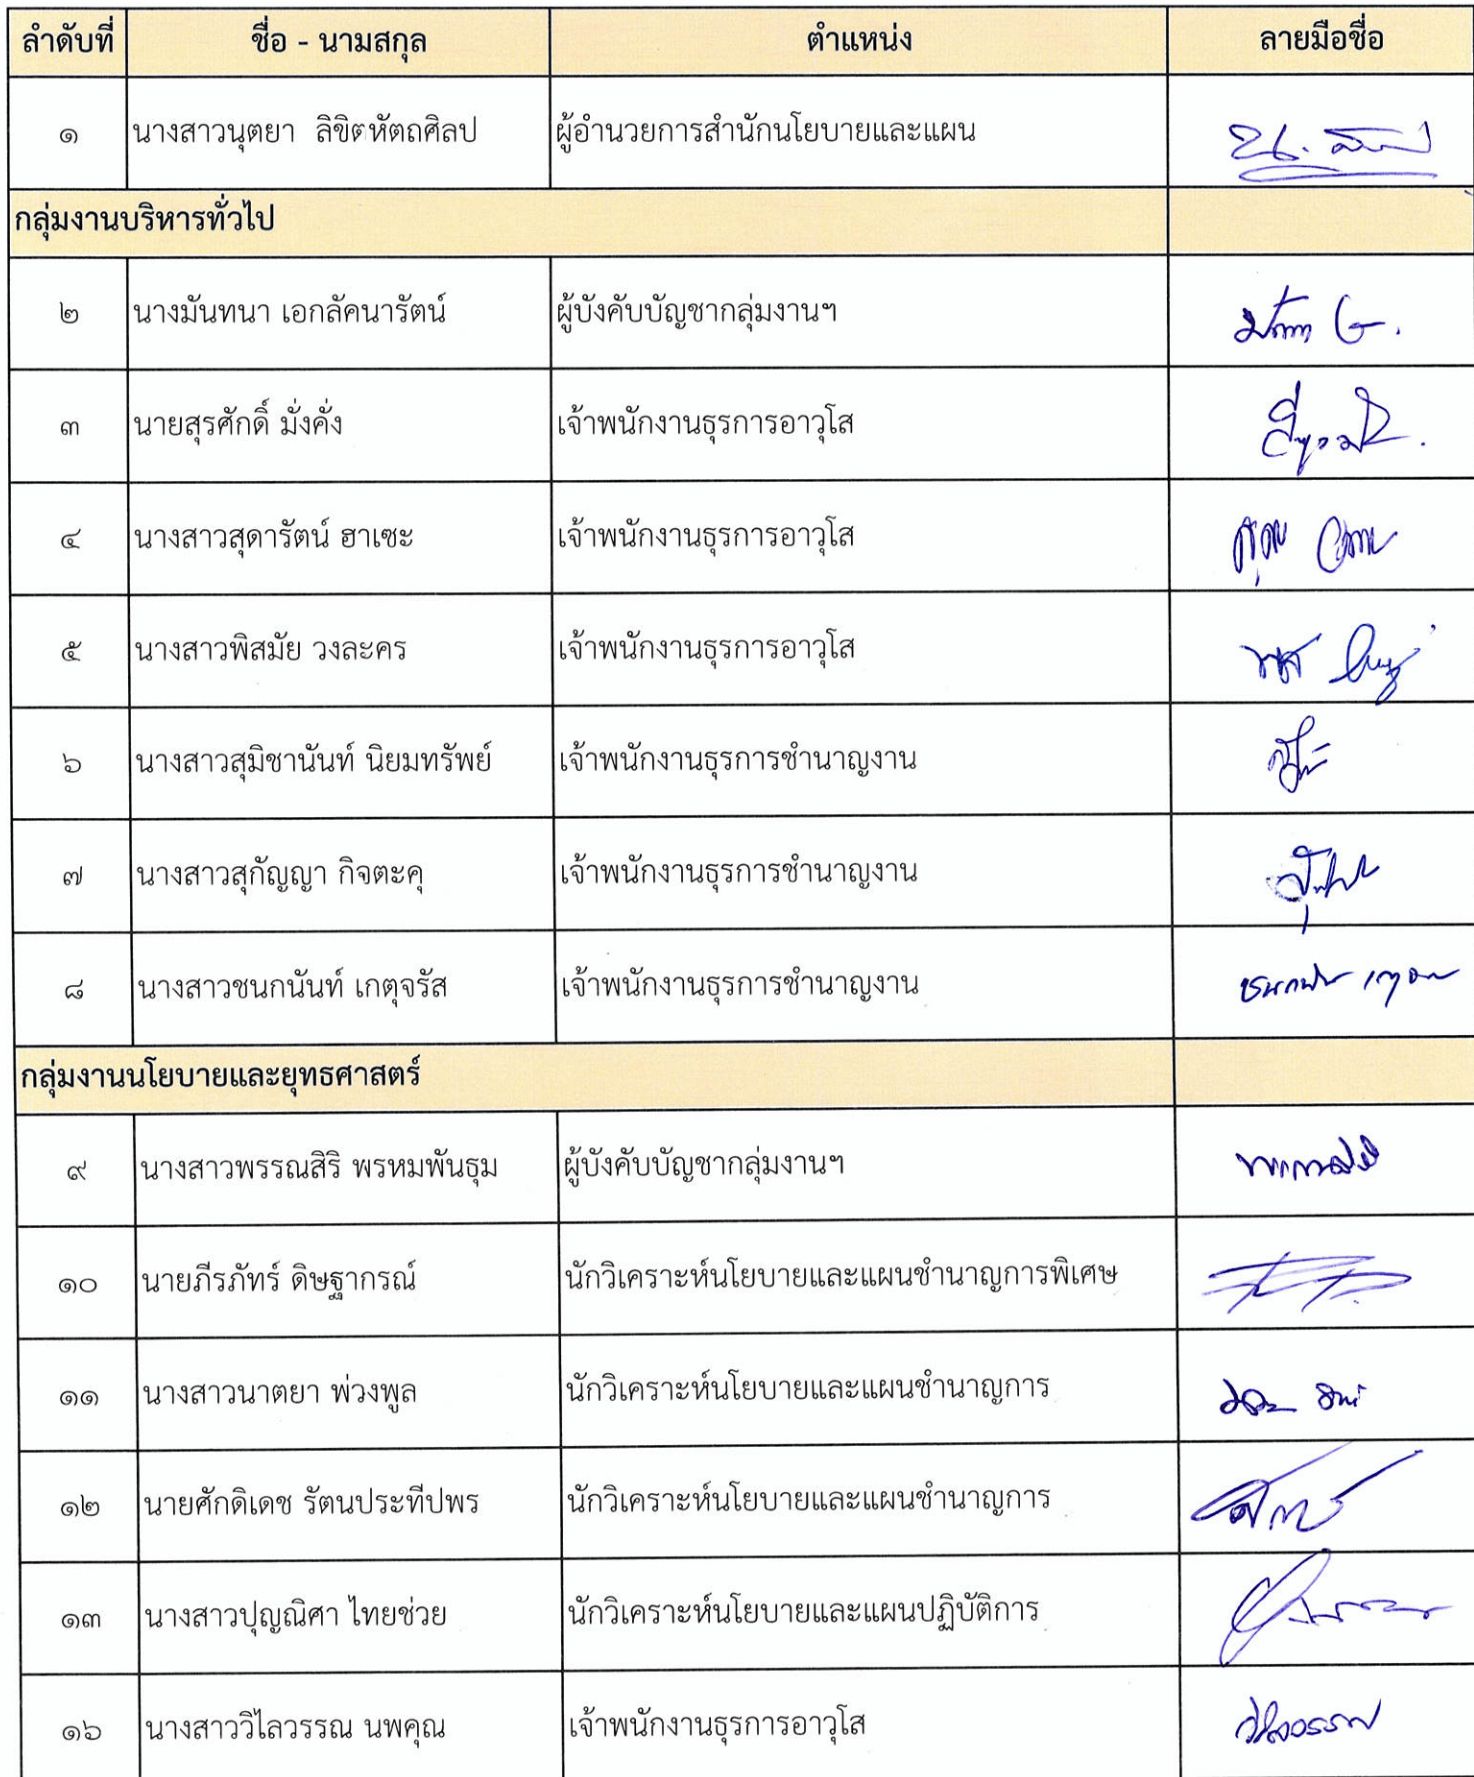 ลำดับที่ ชื่อ - นามสกุล ตำแหน่ง ลายมือชื่อ
๑ นางสาวนุตยา ลิขิตหัตถศิลป ผู้อำนวยการสำนักนโยบายและแผน
กลุ่มงานบริหารทั่วไป
๒ นางมันทนา เอกลัคนารัตน์ ผู้บังคับบัญชากลุ่มงานฯ
๓ นายสุรศักดิ์ มั่งคั่ง เจ้าพนักงานธุรการอาวุโส
๔ นางสาวสุดารัตน์ ฮาเซะ เจ้าพนักงานธุรการอาวุโส
๕ นางสาวพิสมัย วงละคร เจ้าพนักงานธุรการอาวุโส
๖ นางสาวสุมิชานันท์ นิยมทรัพย์ เจ้าพนักงานธุรการชำนาญงาน
๗ นางสาวสุกัญญา กิจตะคุ เจ้าพนักงานธุรการชำนาญงาน
๘ นางสาวชนกนันท์ เกตุจรัส เจ้าพนักงานธุรการชำนาญงาน
กลุ่มงานนโยบายและยุทธศาสตร์
๙ นางสาวพรรณสิริ พรหมพันธุม ผู้บังคับบัญชากลุ่มงานฯ
๑๐ นายภีรภัทร์ ดิษฐากรณ์ นักวิเคราะห์นโยบายและแผนชำนาญการพิเศษ
๑๑ นางสาวนาตยา พ่วงพูล นักวิเคราะห์นโยบายและแผนชำนาญการ
๑๒ นายศักดิเดช รัตนประทีปพร นักวิเคราะห์นโยบายและแผนชำนาญการ
๑๓ นางสาวปุญณิศา ไทยช่วย นักวิเคราะห์นโยบายและแผนปฏิบัติการ
๑๖ นางสาววิไลวรรณ นพคุณ เจ้าพนักงานธุรการอาวุโส วิไลวรรณ